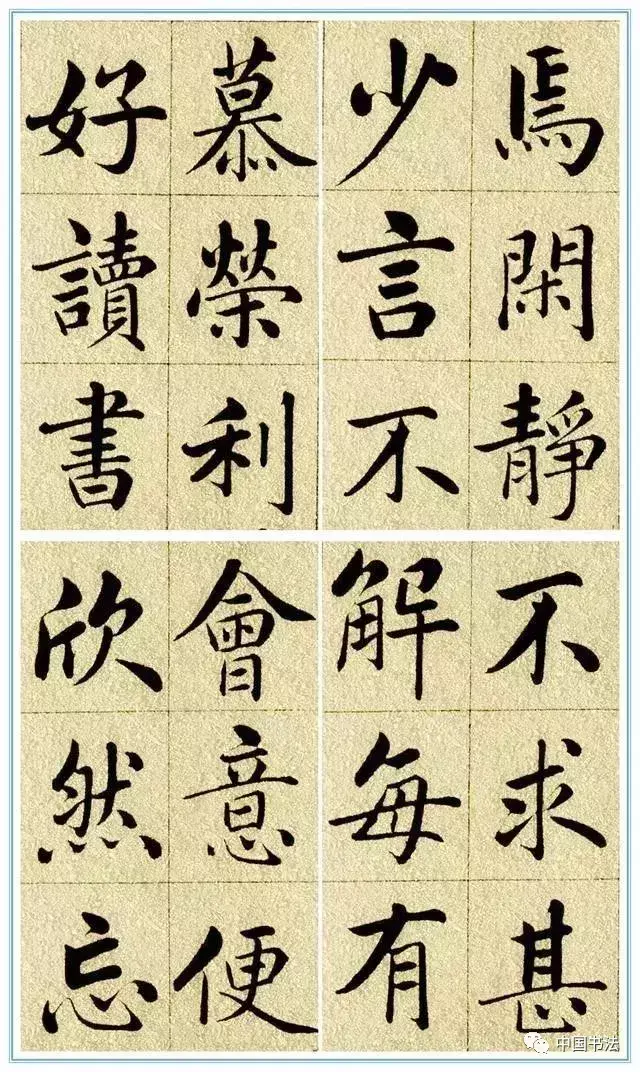 焉閑靜
少言不
慕榮利
好讀書
不求甚
解每有
會意便
欣然忘
中国书法